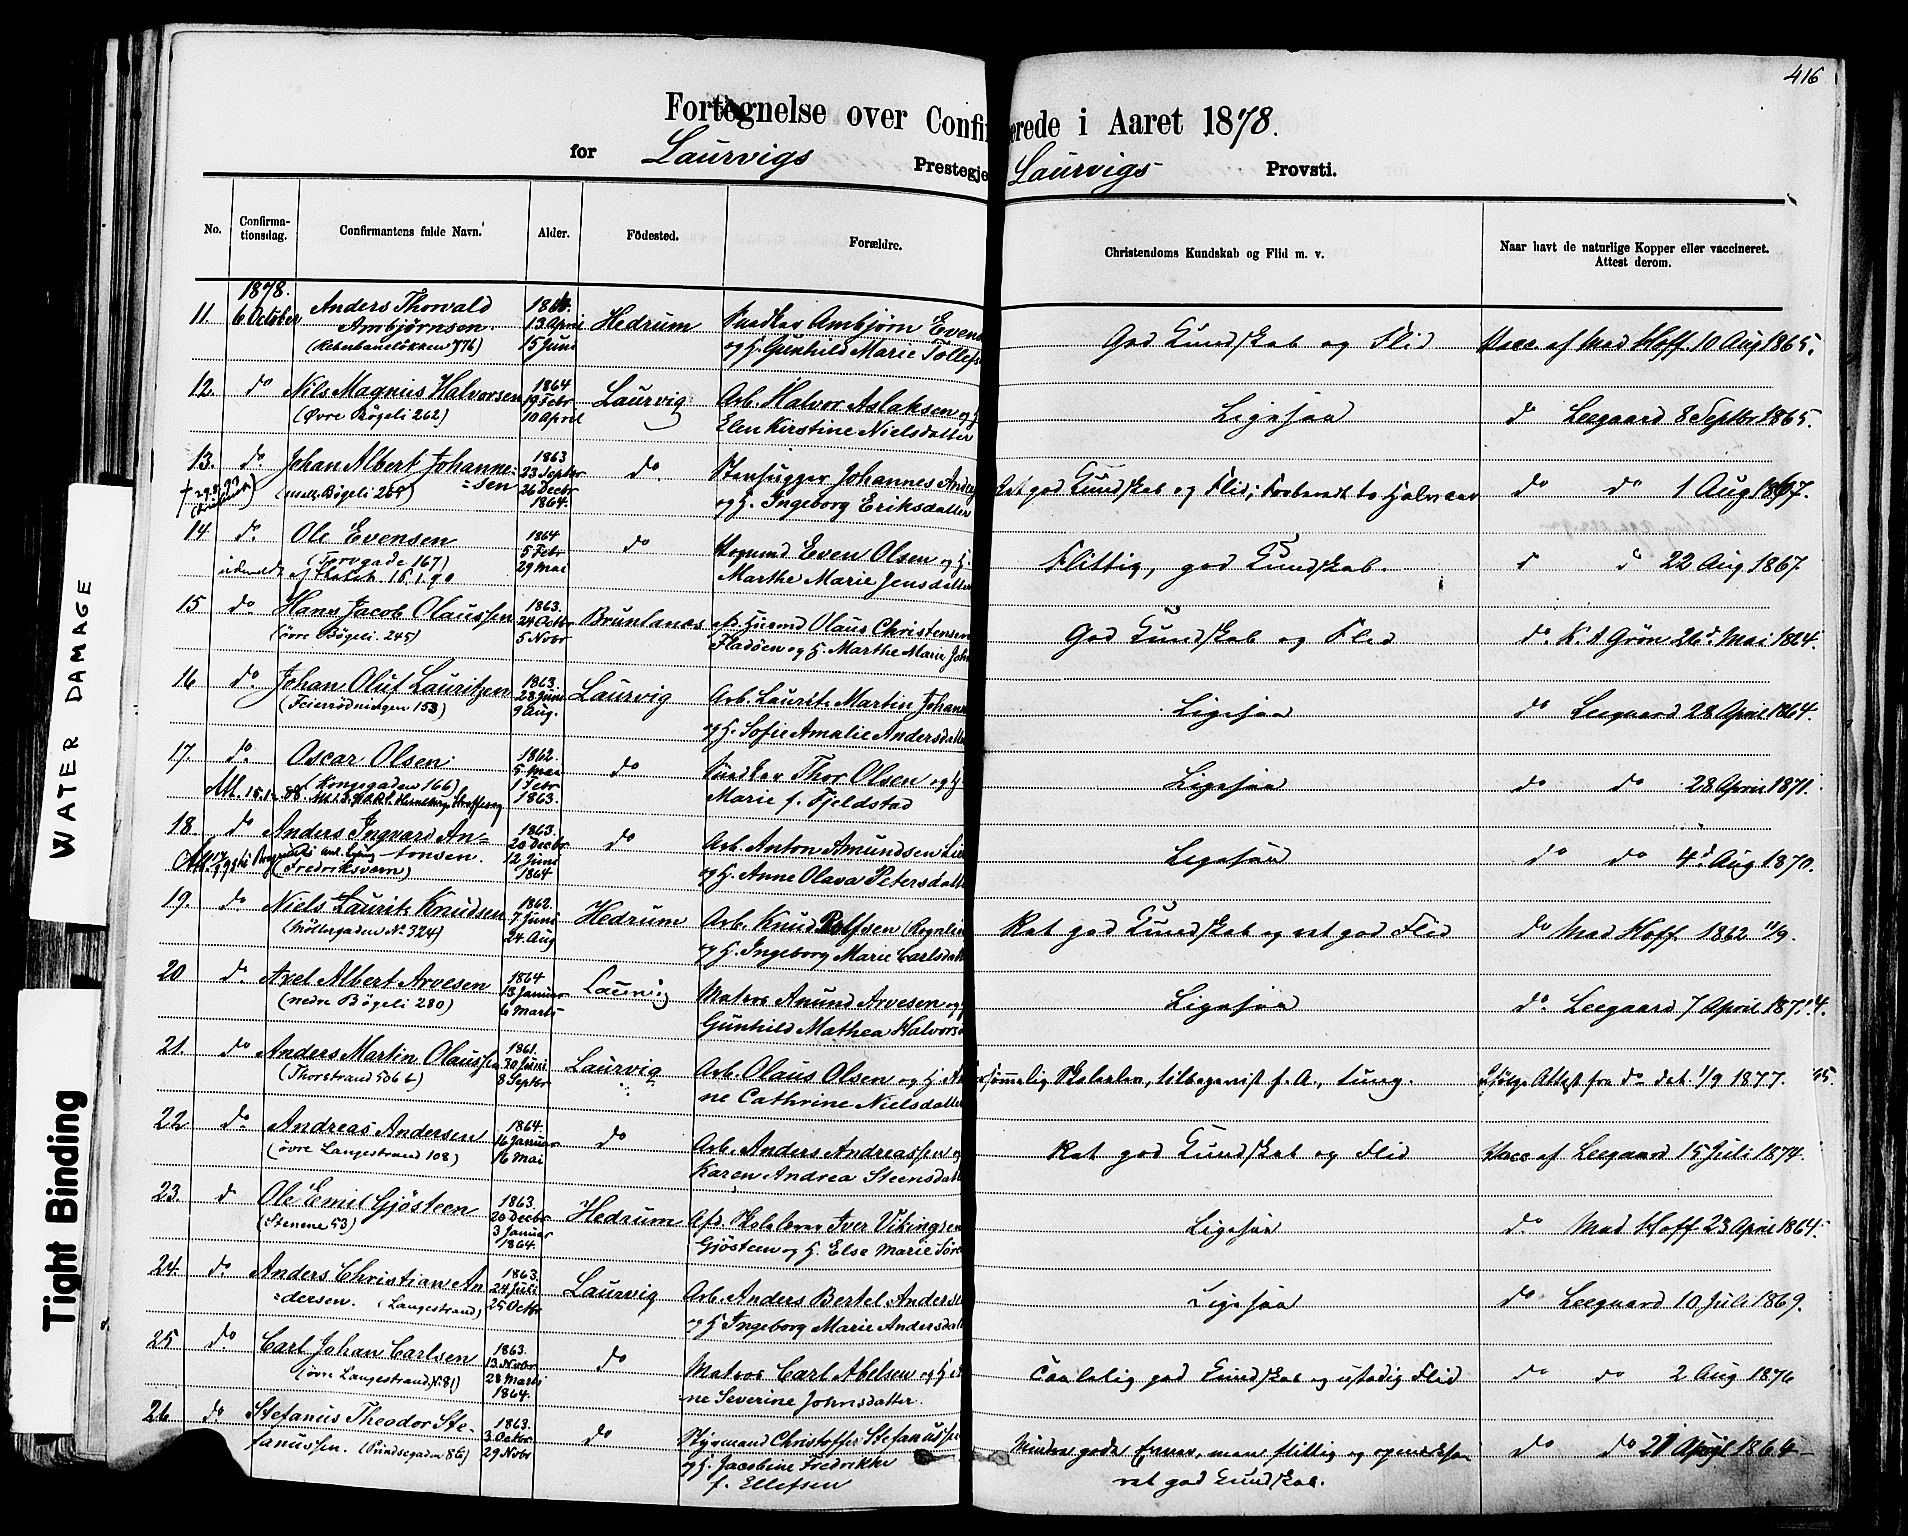 416
Fortegnelse over Confirmerede i Aaret 1878.
for Laurvigs Prestegje Laurvigs Provsti.
No. Confirma-tionsdag. Confirmantens fulde Navn. Alder. Födested. Forældre. Christendoms Kundskab og Flid m. v. Naar havt de naturlige Kopper eller vaccineret. Attest derom.
1878.
11. 6 October Anders Thorvald 1864. 13 April Hedrum Ambjørn Evens God Kundskab og Flid Vacc. af Mad Hoff 10 Aug 1865.
Ambjørnsen. 15 Juni og H. Gunhild Marie Tollefs
12. do Nils Magnus Halvorsen 1864 19 Febr Laurvig Arb. Halvor Aslaksen og H. Ligesaa do Leegaard 8 Septbr 1865.
(Øvre Bøgeli 262) 10 April Elen Kirstine Nielsdatter
13. do. Johan Albert Johanne= 1863 23 Septbr do. Stenhugger Johannes Andr Ret god Kundskab og Flid; do do 1 Aug 1867.
=sen 26 Decbr 1864. og H. Ingeborg Eriksdatter
(nedr. Bøgeli 265)
14 do. Ole Evensen 1864 5 Febr do Even Olsen og H. Flittig, god Kundskab. 22 Aug 1867.
(Torvgade 167) 29 Mai Marthe Marie Jensdatter
15 do Hans Jacob Olaussen 1863. 24 Octbr Brunlanæs Olaus Christensen God Kundskab og Flid do. K. A Grøn 26d Mai 1864.
(övre Bøgeli 245) 5 Novbr Fladöen og H. Marthe Marie Joh
16 do. Johan Oluf Lauritzen 1863. 28 Juni Laurvig Arb. Laurits Martin Johann Ligesaa do Leegaard 28 April 1864.
(Feierrödningen 153) 9 Aug. og H. Sofie Amalie Andersdatter
17. do. Oscar Olsen. 1862. 5 Mai do Thor Olsen og H. Ligesaa do do 28 April 1871.
(Kongegaden 166) 1 Febr 1863. Marie f. Fjeldstad
18. do Anders Ingvard An= 1863. 20 Decbr do Arb. Anton Amundsen Ligesaa do do 4d Aug 1870.
tonsen. 12 Juni 1864 og H. Anne Olava Petersdatte
(Fredriksværn)
19. do Niels Laurits Knudsen 1862. 7 Juni Hedrum Arb. Knud Rolfsen Ret god Kundskab og ret god Flid do Mad Hoff 1862 11/9.
(Möllergaden No 324) 24. Aug og H. Ingeborg Marie Carlsdatt
20 do. Axel Albert Arvesen 1864 13 Januar Laurvig Matros Anund Arvesen og H Ligesaa do. Leegaard 7 April 1871.
(nedre Bøgeli 280) 6 Marts Gunhild Mathea Halvorsd
21. do Anders Martin Olaussen 1861. 30 Juni Laurvig Arb. Olaus Olsen og H. An sömmelig Skolelev, tilbagevist f. A., tung. ifølge Attest fra do dat 1/9 1877.
(Thorstrand 506 b) 8 Septbr ne Cathrine Nielsdatter
22 do. Andreas Andersen 1864. 16 Januar do Arb. Anders Andreassen og Ret god Kundskab og Flid Vacc af Leegaard 15 Juli 1874.
(övre Langestrand 108) 16 Mai Karen Andrea Steensdat
23. do Ole Emil Gjösteen 1863. 20 Decbr Hedrum Iver Vikingsen Ligesaa do. Mad Hoff 23 April 1864.
(Stenene 53) 3 Januar 1864. Gjösteen og H. Else Marie Söre
24. do. Anders Christian An 1863. 24 Juli Laurvig Arb. Anders Bertel Anderse Ligesaa do Leegaard 10 Juli 1869.
=dersen. (Langestrand) 25 Octbr og H Ingeborg Marie Andersdatt
25 do. Carl Johan Carlsen 1863. 13 Novbr do Matros Carl Abelsen og H. Taalelig god Kundskab og ustadig Flid do do 2 Aug 1876
(övre Langestrand No 81) 28 Marts 1864. ne Severine Johnsdatter.
26 do Stefanus Theodor Ste= 1863. 3 Octbr. do Styrmand Christoffer Stefanusse Mindre gode Evner, men flittig og do do 21 April 1864
fanussen. (Prindsegaden 86) 29 Novbr og H. Jacobine Fredrikke ret god Kundskab.
f. Ellefsen
WATER DAMAGE
Tight Binding